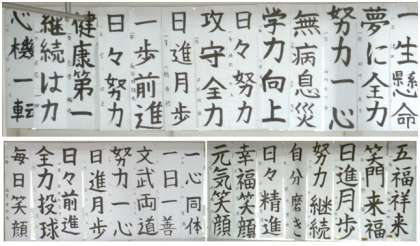 一生懸命
夢に全力
努力一心
無病息災
学力向上
日々努力
攻守全力
日進月歩
一歩前進
日々努力
健康第一
継続は力
心機一転
五福祥来
笑門来福
日進月歩
努力継続
自分磨き
日々精進
幸福笑顔
元気笑顔
一心同体
一日一善
文武両道
努力一心
日進月歩
日々前進
全力投球
毎日笑顔